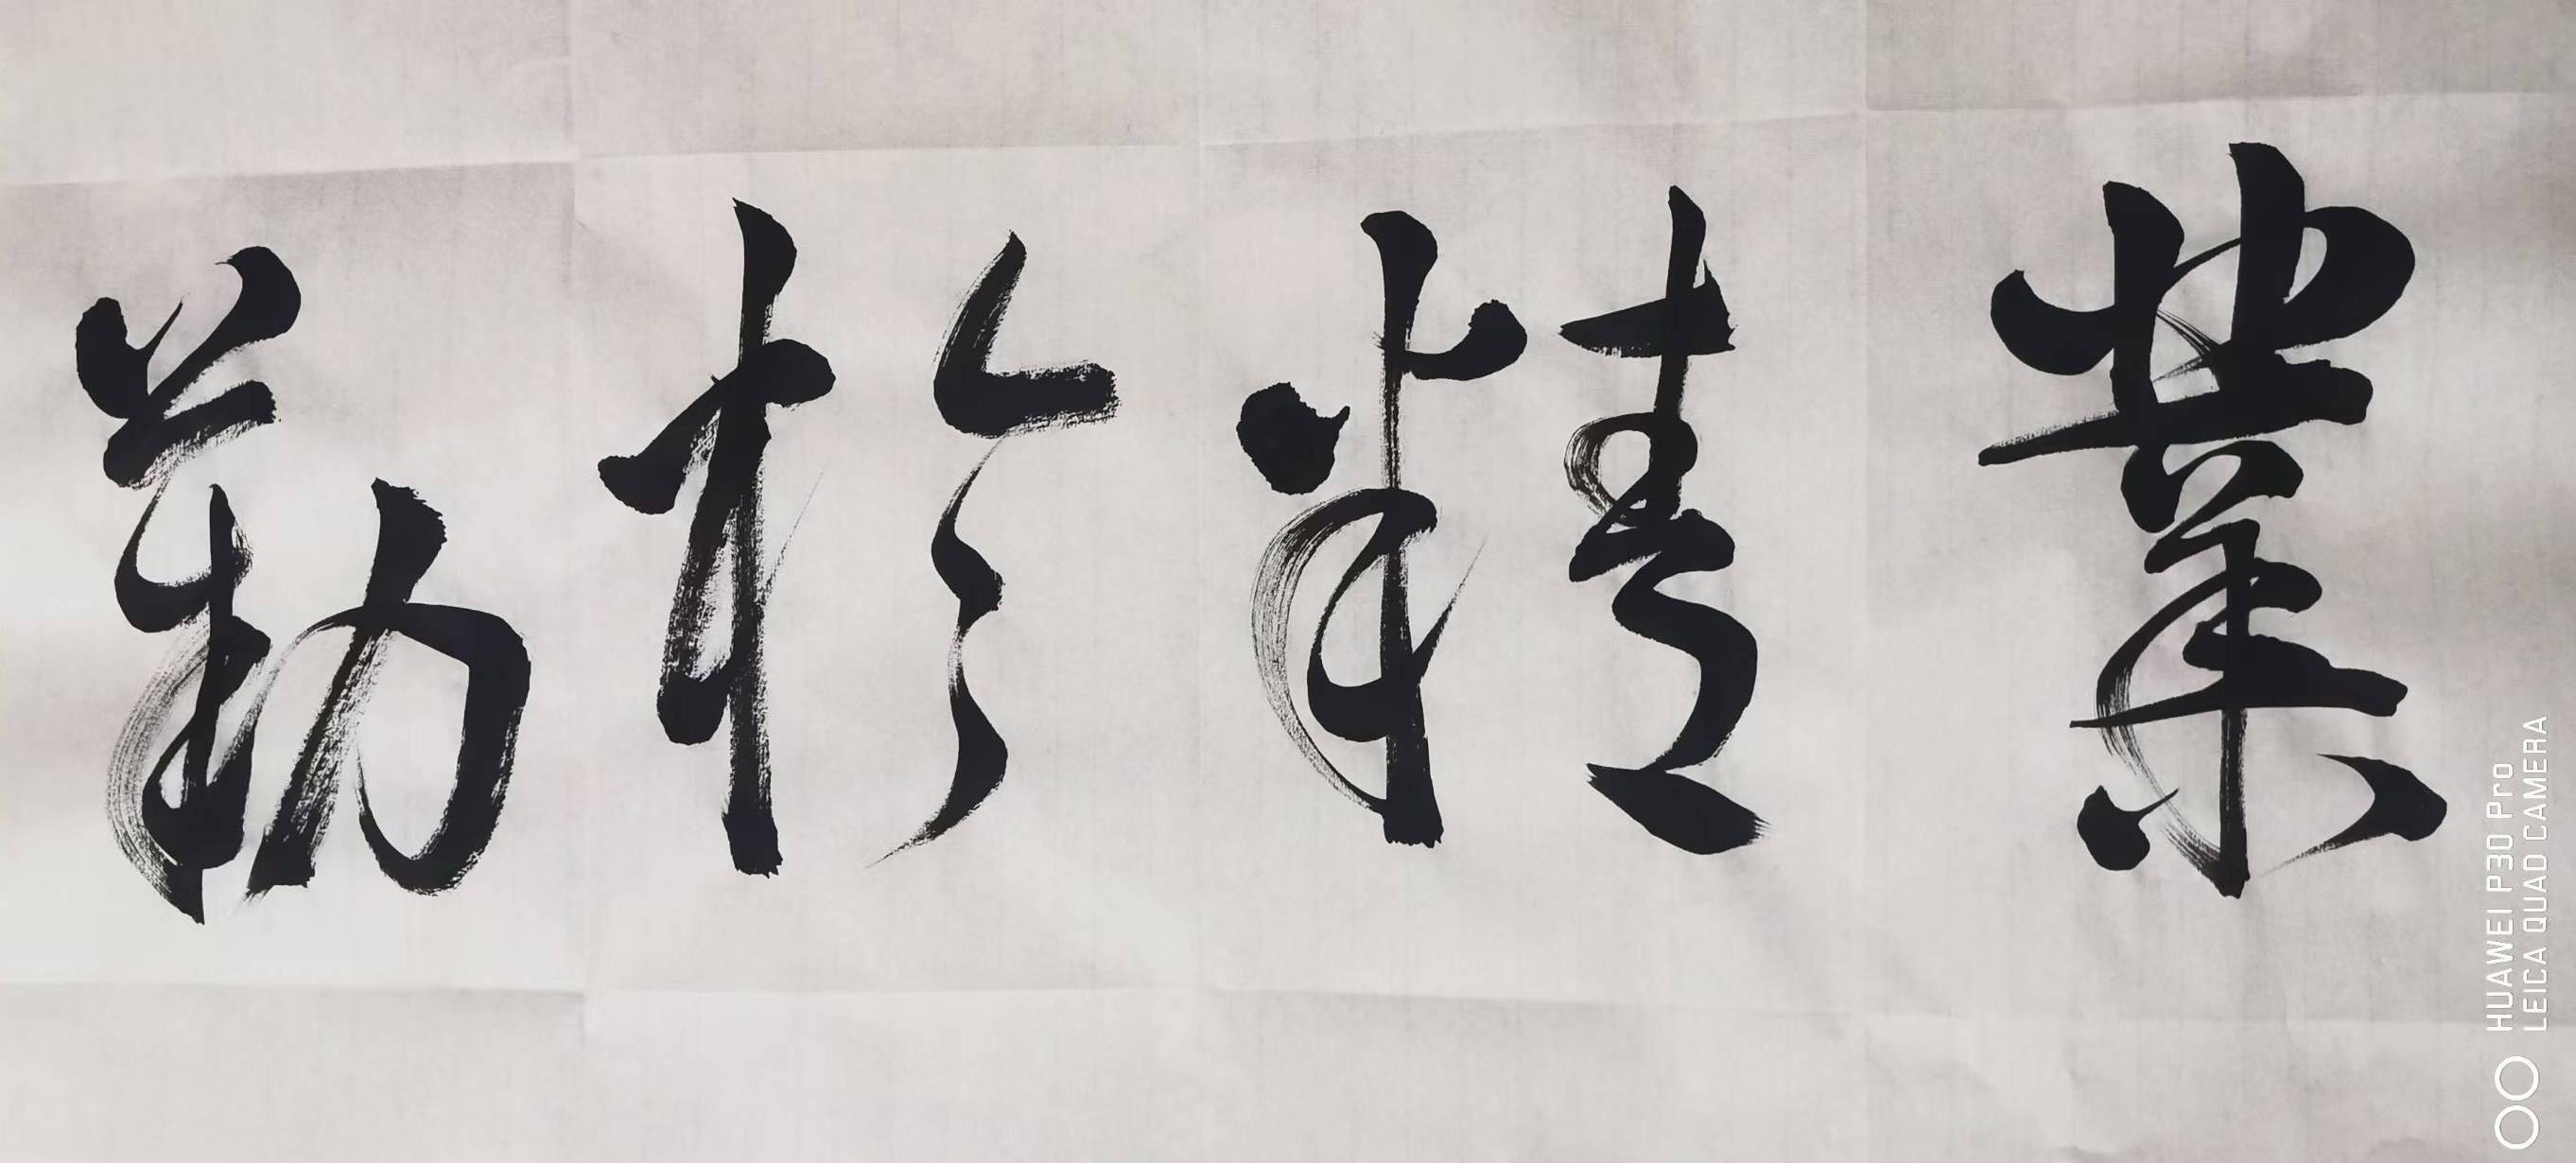 業精於勤
HUAWEI P30 Pro
LEICA QUAD CAMERA